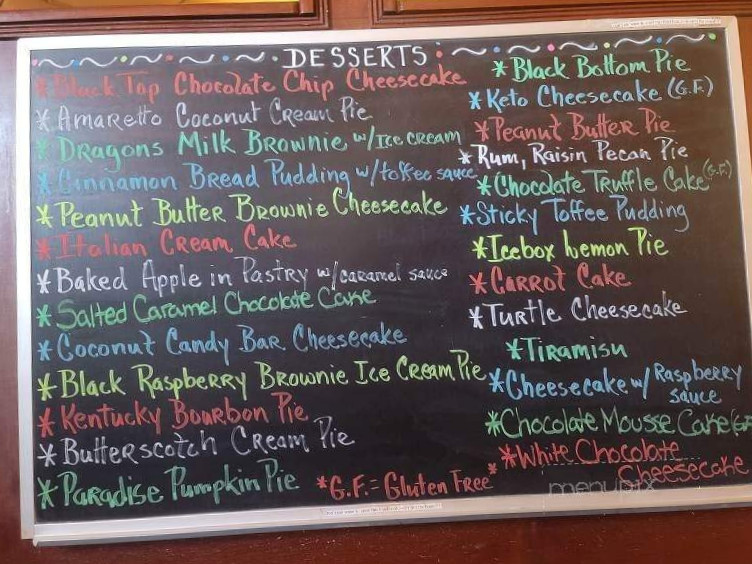 DESSERTS
*Black Top Chocolate Chip Cheesecake
*Amaretto Coconut Cream Pie
*Dragons Milk Brownie w/Ice cream
*Cinnamon Bread Pudding w/toffee sauce
*Peanut Butter Brownie Cheesecake
*Italian Cream Cake
*Baked Apple in Pastry w/caramel sauce
*Salted Caramel Chocolate Cake
*Coconut Candy Bar Cheesecake
*Black Raspberry Brownie Ice Cream Pie
*Kentucky Bourbon Pie
*Butterscotch Cream Pie
*Paradise Pumpkin Pie
*G.F.= Gluten Free*
*Black Bottom Pie
*Keto Cheesecake (G.F.)
*Peanut Butter Pie
*Rum, Raisin Pecan Pie
*Chocolate Truffle Cake (G.F.)
*Sticky Toffee Pudding
*Icebox Lemon Pie
*Carrot Cake
*Turtle Cheesecake
*Tiramisu
*Cheesecake w/ Raspberry
sauce
*Chocolate Mousse Cake (GF
*White Chocolate
Cheesecake
menupix